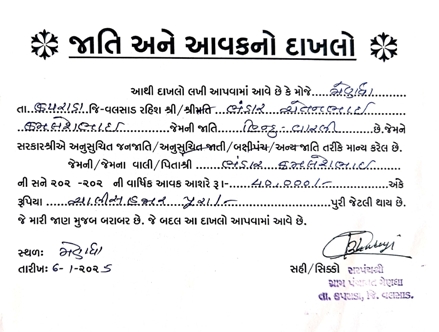 જાતિ અને આવકનો દાખલો
આથી દાખલો લખી આપવામાં આવે છે કે મોજે મેણધા
તા. કપરાડા જિ-વલસાડ રહિશ શ્રી/શ્રીમતિ ચેતનભાઇ
કમલેશભાઇ જેમની જાતિ હિન્દુ - વારલી છે.જેમને
સરકારશ્રીએ અનુસુચિત જનજાતિ/ અનુસુચિત જાતી/બક્ષીપંચ/અન્ય જાતિ તરીકે માન્ય કરેલ છે.
જેમની/જેમના વાલી/પિતાશ્રી કમલેશભાઇ
ની સને ૨૦૨ -૨૦૨ ની વાર્ષિક આવક આશરે રૂા- ૪૦,૦૦૦/- અંકે
રૂપિયા ચાલીસ હજાર પુરા/- પુરી જેટલી થાય છે.
જે મારી જાણ મુજબ બરાબર છે. જે બદલ આ દાખલો આપવામાં આવે છે.
સ્થળ: મેણધા
તારીખ: ૬-૧-૨૦૨૫
સહી/સિક્કો સરપંચશ્રી
ગ્રામ પંચાયત મેણધા
તા. કપરાડા, જિ. વલસાડ.